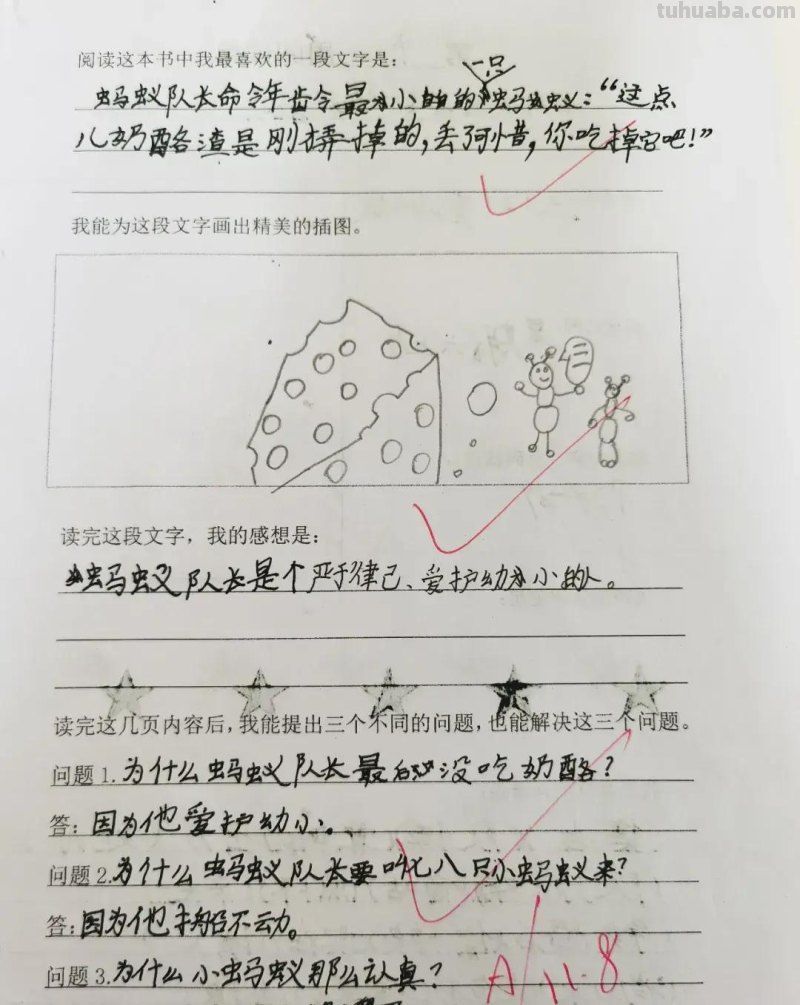 tuhuaba.com
阅读这本书中我最喜欢的一段文字是：
一只
蚂蚁队长命令年齿令最小的的蚂蚁：“这点
儿奶酪渣是刚弄掉的，丢了可惜，你吃掉它吧！”
我能为这段文字画出精美的插图。
读完这段文字，我的感想是：
蚂蚁队长是个严于律己、爱护幼小的人。
读完这几页内容后，我能提出三个不同的问题，也能解决这三个问题。
问题1.为什么蚂蚁队长最后没吃奶酪？
答：因为他爱护幼小。
问题2.为什么蚂蚁队长要叫七八只小蚂蚁来？
答：因为他搬不动。
问题3.为什么小蚂蚁那么认真？
A 11.8